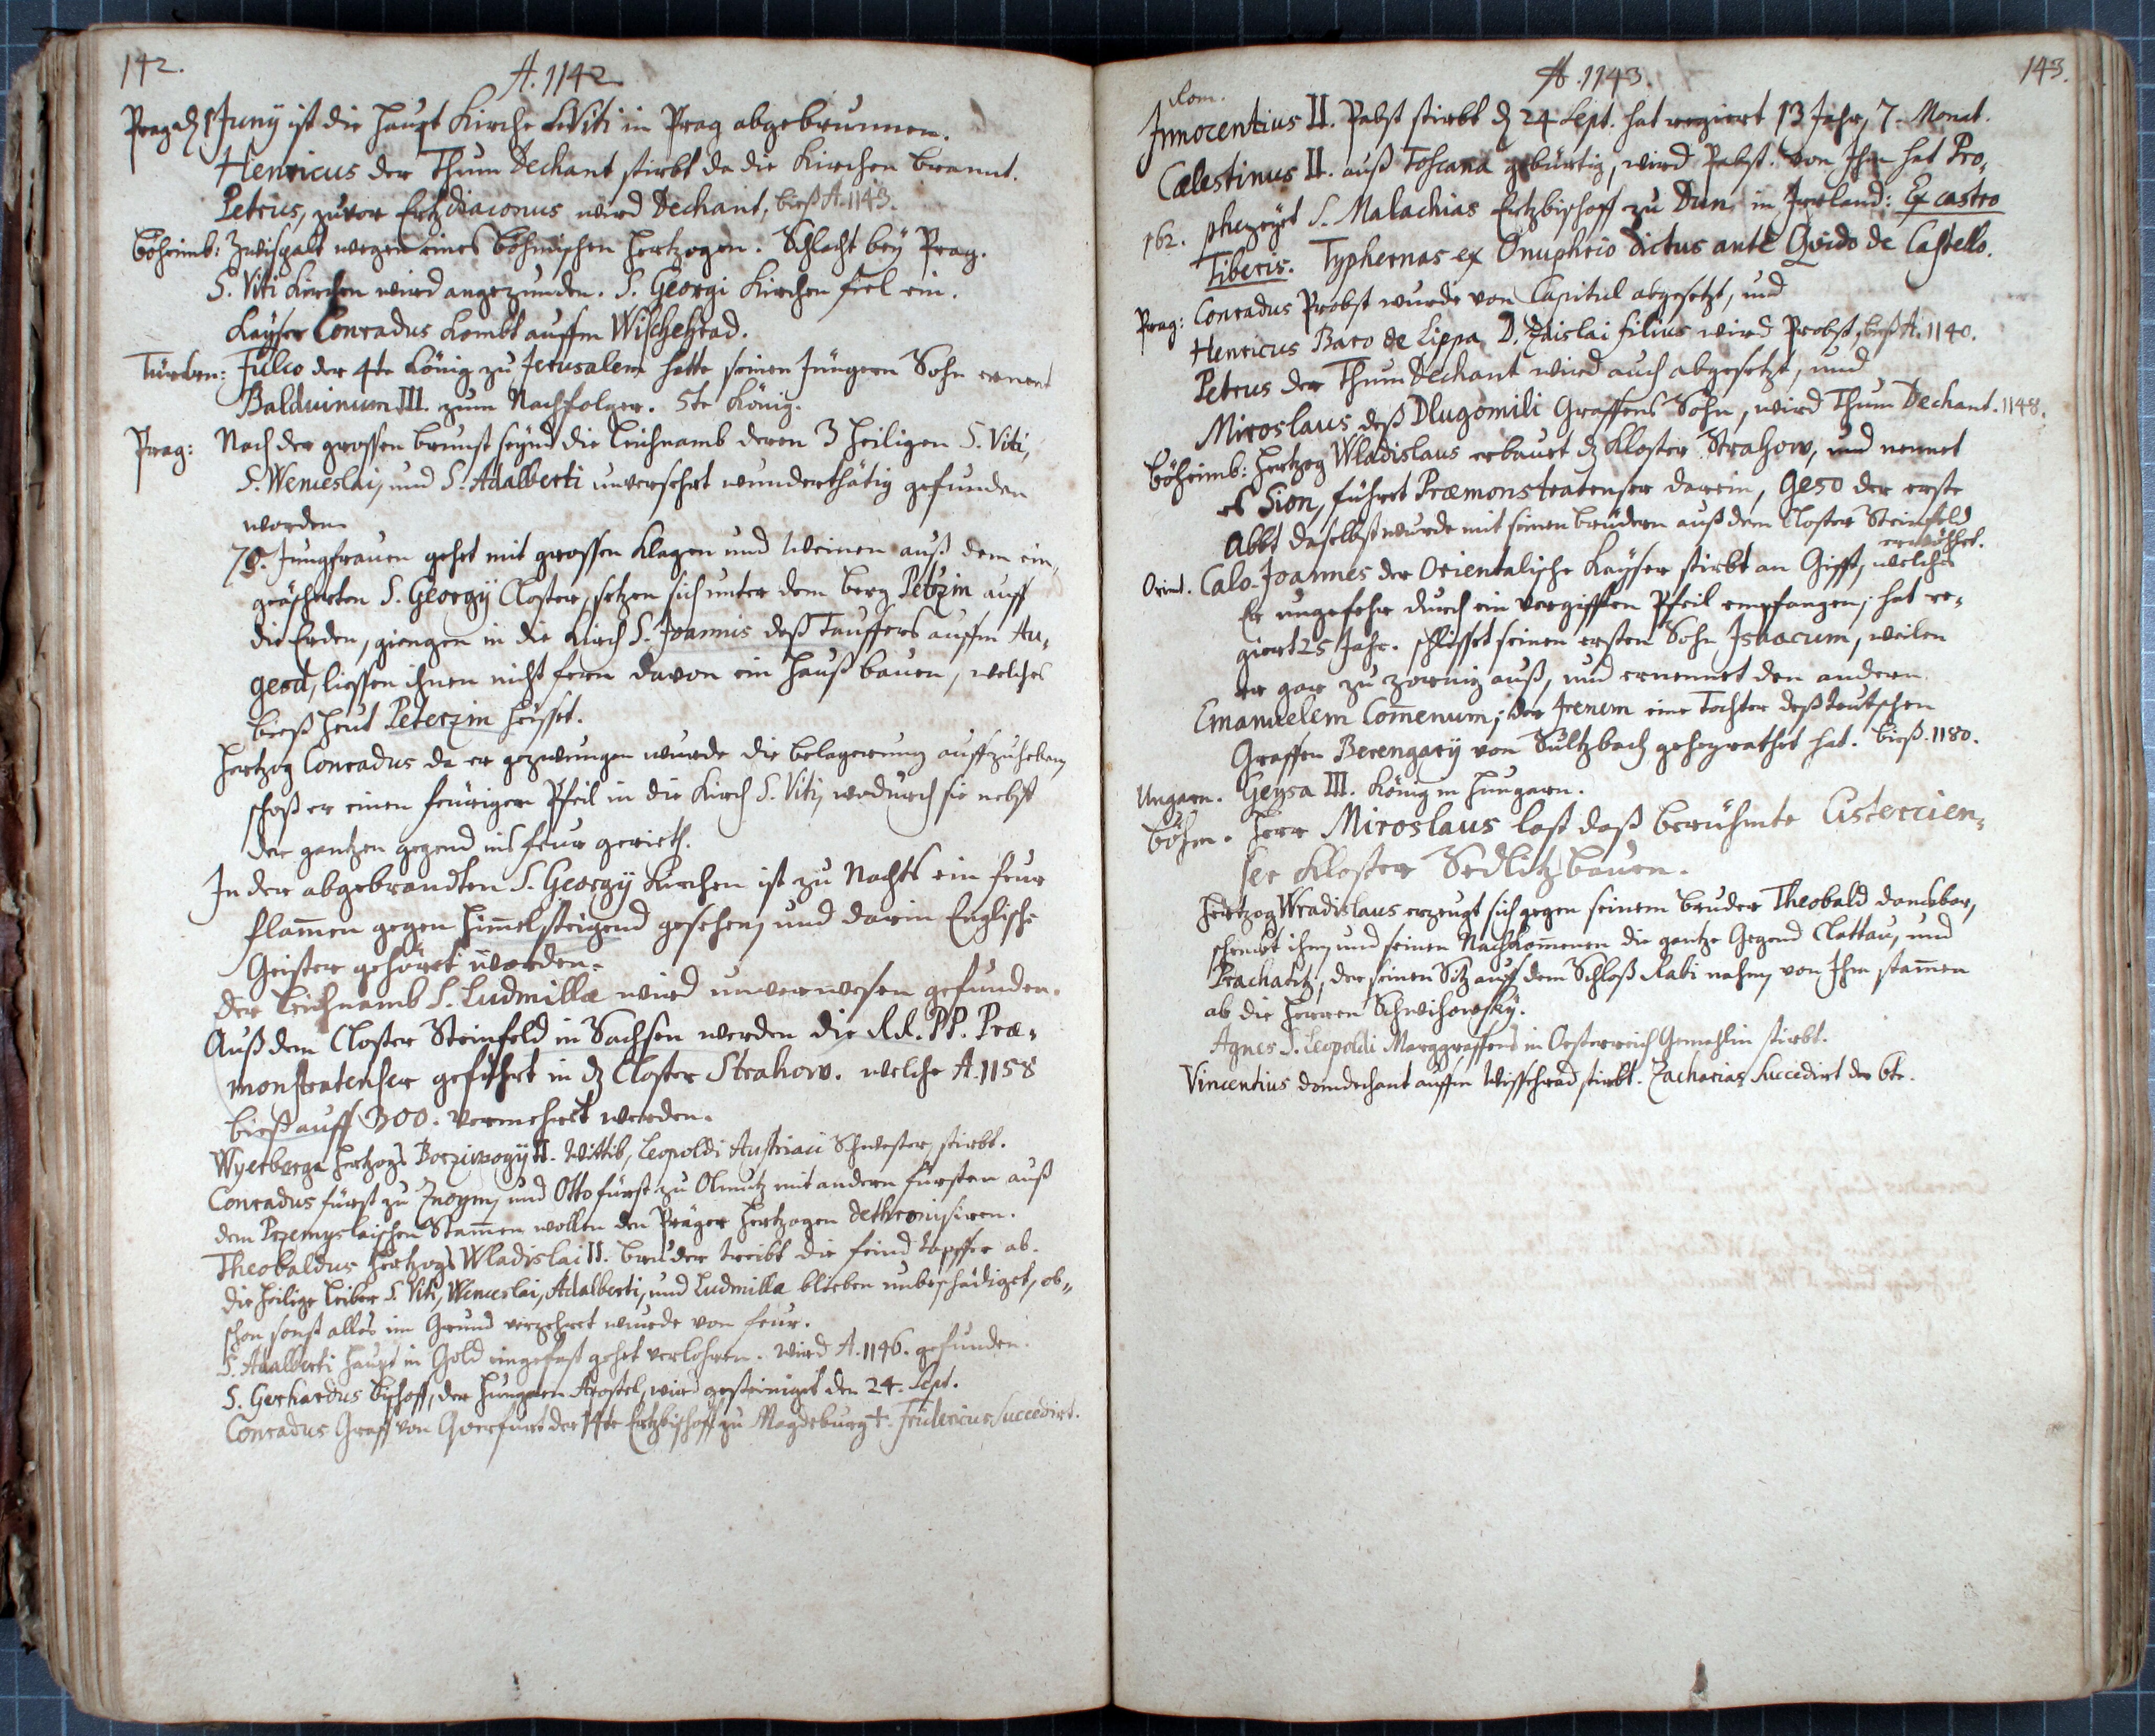 142.
A. 1142
Prag d. 1 Juny ist die Haupt Kirche S. Viti in Prag abgebrunnen.
Henricus der Thum Dechant stirbt da die Kirchen brannt.
Petrus, zuvor Ertzdiaconus wird Dechant, bieß A. 1143.
Böheimb: Zwispalt wegen eines böhmischen Hertzogen. Schlacht bey Prag.
S. Viti Kirchen wird angezunden. S. Georgi Kirchen fiel ein.
Kayser Conradus kombt auffm Wischehrad.
Türcken: Fulco der 4te König zu Jerusalem hatte seinen Jüngern Sohn ernent
Balduinum III. zum Nachfolger. 5te König.
Prag: Nach der grossen brunst seynd die Leichnamb deren 3 Heiligen S. Viti,
S. Wenceslai, und S. Adalberti unversehrt wunderthätig gefunden
worden.
70. Jungfrauen gehet mit grossen Klagen und Weinen auß dem ein-
geäscherten S. Georgÿ Closter, setzen sich unter dem berg Petrzin auff
die Erden, giengen in die Kirch S. Joannis deß Tauffers auffm Au-
gesd, liessen ihnen nicht fern davon ein Hauß bauen, welches
bieß heut Peterzin heisset.
Hertzog Conradus da er gezwungen wurde die belagerung auffzuheben,
schoß er einen feurigen Pfeil in die Kirch S. Viti, wodurch sie nebst
der gantzen gegend ins feur gerieth.
In der abgebrandten S. Georgÿ Kirchen ist zu Nachts ein feur
flam̄en gegen Him̄el steigend gesehen, und darin Englische
Geister gehöret worden.
Der Leichnamb S. Ludmillæ wird unverwesen gefunden.
Auß dem Closter Steinfeld in Sachsen werden die R.R. P.P. Præ-
monstratenser geführt in dz Closter Strahow. welche A. 1158
bieß auff 300. vermehrt werden.
Wyerberga Hertzogs Borziwogÿ II. Wittib, Leopoldi Austriaci Schwester, stirbt.
Conradus fürst zu Znoym, und Otto fürst zu Olmutz mit andern fürsten auß
dem Przemyslaischen Stam̄en wollen den Prager Hertzogen dethronisiren.
Theobaldus Hertzogs Wladislai II. bruder treibt die feind tapffer ab.
Die Heilige Leiber S. Viti, Wenceslai, Adalberti, und Ludmilla blieben unbeschädiget, ob-
schon sonst alles im Grund verzehret wurde von feur.
S. Adalberti Haupt in Gold eingefast gehet verlohren. wird A. 1146. gefunden.
S. Gerhardus bischoff, der Hungarn Apostel, wird gesteiniget den 24. Sept.
Conradus Graff von Qverfurt der 14te Ertzbischoff zu Magdeburg †. Fridericus Succedirt.
143.
A. 1143.
Rom.
Innocentius II. Pabst stirbt d. 24 Sept. hat regiert 13 Jahr, 7. Monat.
Cælestinus II. auß Toscana gebürtig, wird Pabst. von Ihm hat Pro-
162. phezeyt S. Malachias Ertzbischoff zu Dun in Irrland: Ex castro
Tiberis. Typhernas ex Onuphrio dictus ante Qvido de Castello.
Prag: Conradus Probst wurde von Capitul abgesetzt, und
Henricus Baro de Lippa D. Zdislai filius wird Probst, bieß A. 1140.
Petrus der Thum Dechant wird auch abgesetzt, und
Miroslaus deß Dlugomili Graffens Sohn, wird Thum Dechant. 1148.
Böheimb: Hertzog Wladislaus erbauet dz Kloster Strahow, und nennet
es Sion, führet Præmonstratenser darein, Geso der erste
Abbt daselbst wurde mit seinen brüdern auß dem Closter Steinfeld
erwöhlet.
Orient. Calo-Joannes der Orientalische Kayser stirbt an Gifft, welches
Er ungefehr durch ein vergifften Pfeil empfangen; hat re-
giert 25 Jahr. schliesset seinen ersten Sohn Isaacum, weilen
er gar zu zornig auß, und ernennet den andern
Emanuelem Com̄enum; der Irenem eine Tochter deß teutschen
Graffen Berengarÿ von Sultzbach geheyrathet hat. bieß. 1180.
Ungarn. Geysa III. König in Hungarn.
Böhm. Herr Miroslaus last daß berühmte Cistercien-
ser Kloster Sedlitz bauen.
Hertzog Wradislaus erzeugt sich gegen seinem bruder Theobald danckbar,
schenckt ihm, und seinen Nachkom̄enen die gantze Gegend Clattau, und
Prachatitz, der seinen Sitz auff dem Schloß Rabi nahm, von Ihm stam̄en
ab die Herren Schwihowsky.
Agnes S. Leopoldi Marggraffens in Oesterreich Gemahlin stirbt.
Vincentius domdechant auffm Wisschrad stirbt. Zacharias Succedirt der 6te.